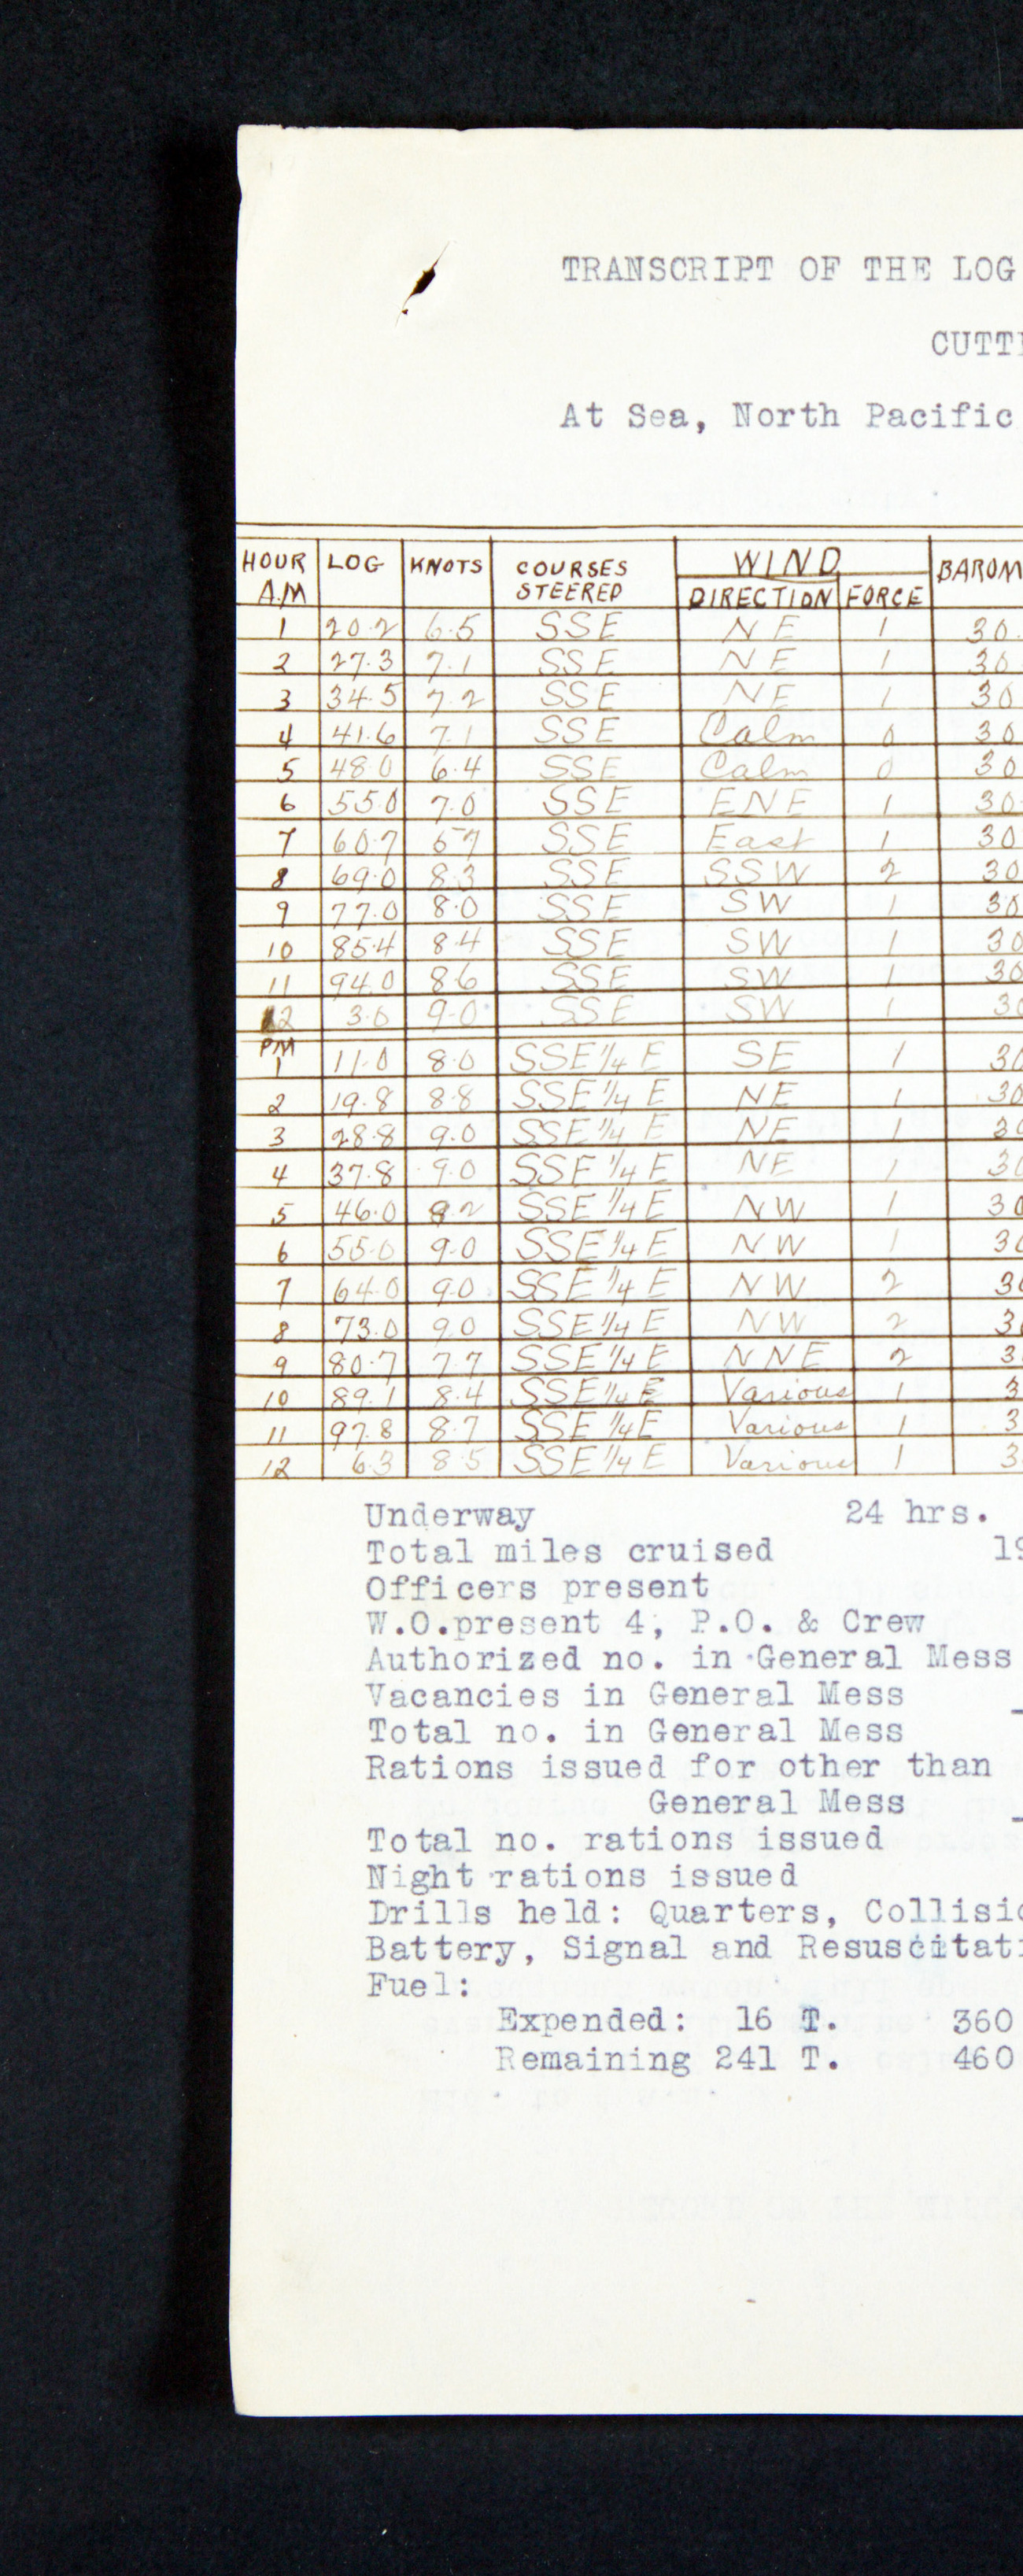 TRANSCRIPT OF THE LOG
CUTT
At Sea, North Pacific
HOUR LOG KNOTS COURSES STEERED WIND BAROM
A.M DIRECTION FORCE
1 20.2 6.5 SSE NE 1 30.
2 27.3 7.1 SSE NE 1 30
3 34.5 7.2 SSE NE 1 30
4 41.6 7.1 SSE Calm 0 30
5 48.0 6.4 SSE Calm 0 30
6 55.0 7.0 SSE ENE 1 30.
7 60.7 5.7 SSE East 1 30
8 69.0 8.3 SSE SSW 2 30
9 77.0 8.0 SSE SW 1 30
10 85.4 8.4 SSE SW 1 30
11 94.0 8.6 SSE SW 1 30
12 3.0 9.0 SSE SW 1 30
PM
1 11.0 8.0 SSE 1/4 E SE 1 30
2 19.8 8.8 SSE 1/4 E NE 1 30
3 28.8 9.0 SSE 1/4 E NE 1 30
4 37.8 9.0 SSE 1/4 E NE 1 30
5 46.0 9.2 SSE 1/4 E NW 1 30
6 55.0 9.0 SSE 1/4 E NW 1 30
7 64.0 9.0 SSE 1/4 E NW 2 30
8 73.0 9.0 SSE 1/4 E NW 2 3
9 80.7 7.7 SSE 1/4 E NNE 2 3
10 89.1 8.4 SSE 1/4 E Various 1 3
11 97.8 8.7 SSE 1/4 E Various 1 3
12 6.3 8.5 SSE 1/4 E Various 1 3
Underway 24 hrs.
Total miles cruised 19
Officers present
W.O.present 4, P.O. & Crew
Authorized no. in General Mess
Vacancies in General Mess
Total no. in General Mess
Rations issued for other than
General Mess
Total no. rations issued
Night rations issued
Drills held: Quarters, Collisio
Battery, Signal and Resuscitati
Fuel:
Expended: 16 T. 360
Remaining 241 T. 460